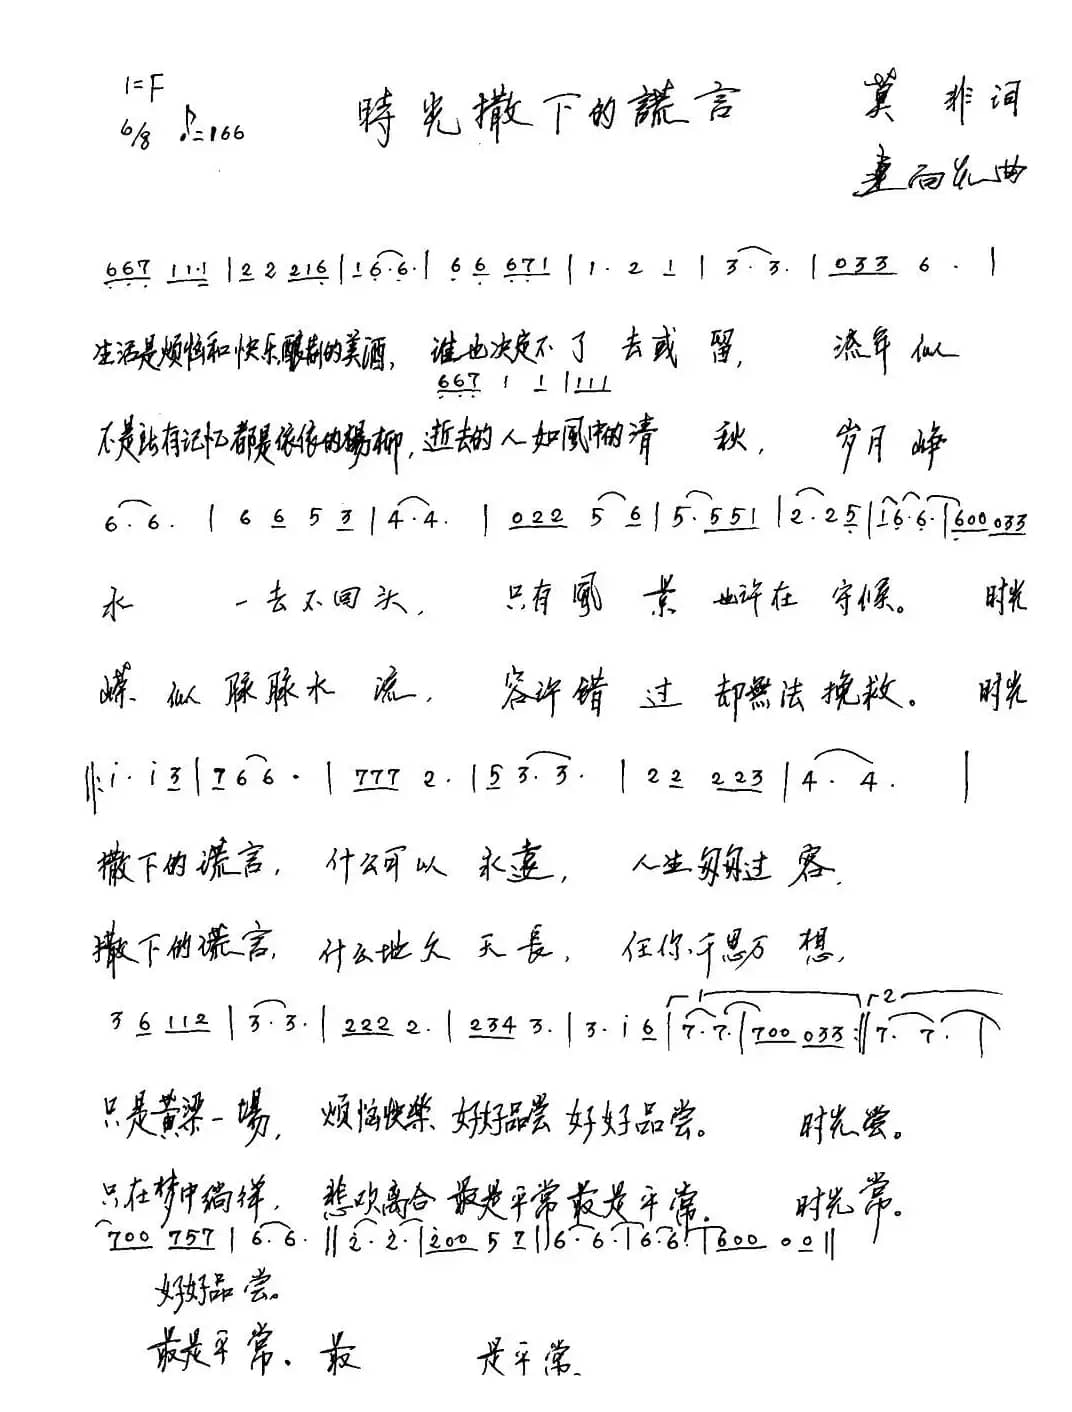 1=F
6/8 ♪=166
時光撒下的謊言
莫非词
曲
667 11·1 | 2 2 216 | 16·6· | 6 6 671 | 1· 2 1 | 3·3· | 033 6 · |
生活是烦恼和快乐酿制的美酒, 谁也决定不了去或留, 流年似
667 1 1 | 111
不是所有记忆都是依依的楊柳, 逝去的人如風中的清秋, 岁月峥
6·6· | 6 6 5 3 | 4·4· | 022 5 6 | 5·551 | 2·25 | 16·6· | 600 033
永 一去不回头, 只有風景也许在守候。 时光
嵘似脉脉水流, 容许错过却無法挽救。 时光
‖: i· i 3 | 7 6 6 · | 777 2· | 5 3·3· | 2 2 223 | 4· 4· |
撒下的谎言, 什么可以永遠, 人生匆匆过客,
撒下的谎言, 什么地久天長, 任你千思万想,
3 6 112 | 3·3· | 222 2· | 234 3· | 3· i 6 | 1 7·7· | 700 033 :‖ 2 7· 7· |
只是黄粱一場, 烦恼快樂好好品尝好好品尝。 时光尝。
只在梦中徜徉, 悲欢离合最是平常最是平常。 时光常。
700 757 | 6·6· ‖ 2·2· | 200 5 7 ‖ 6·6· | 6·6· | 600 0 0 ‖
好好品尝。
最是平常。最 是平常。